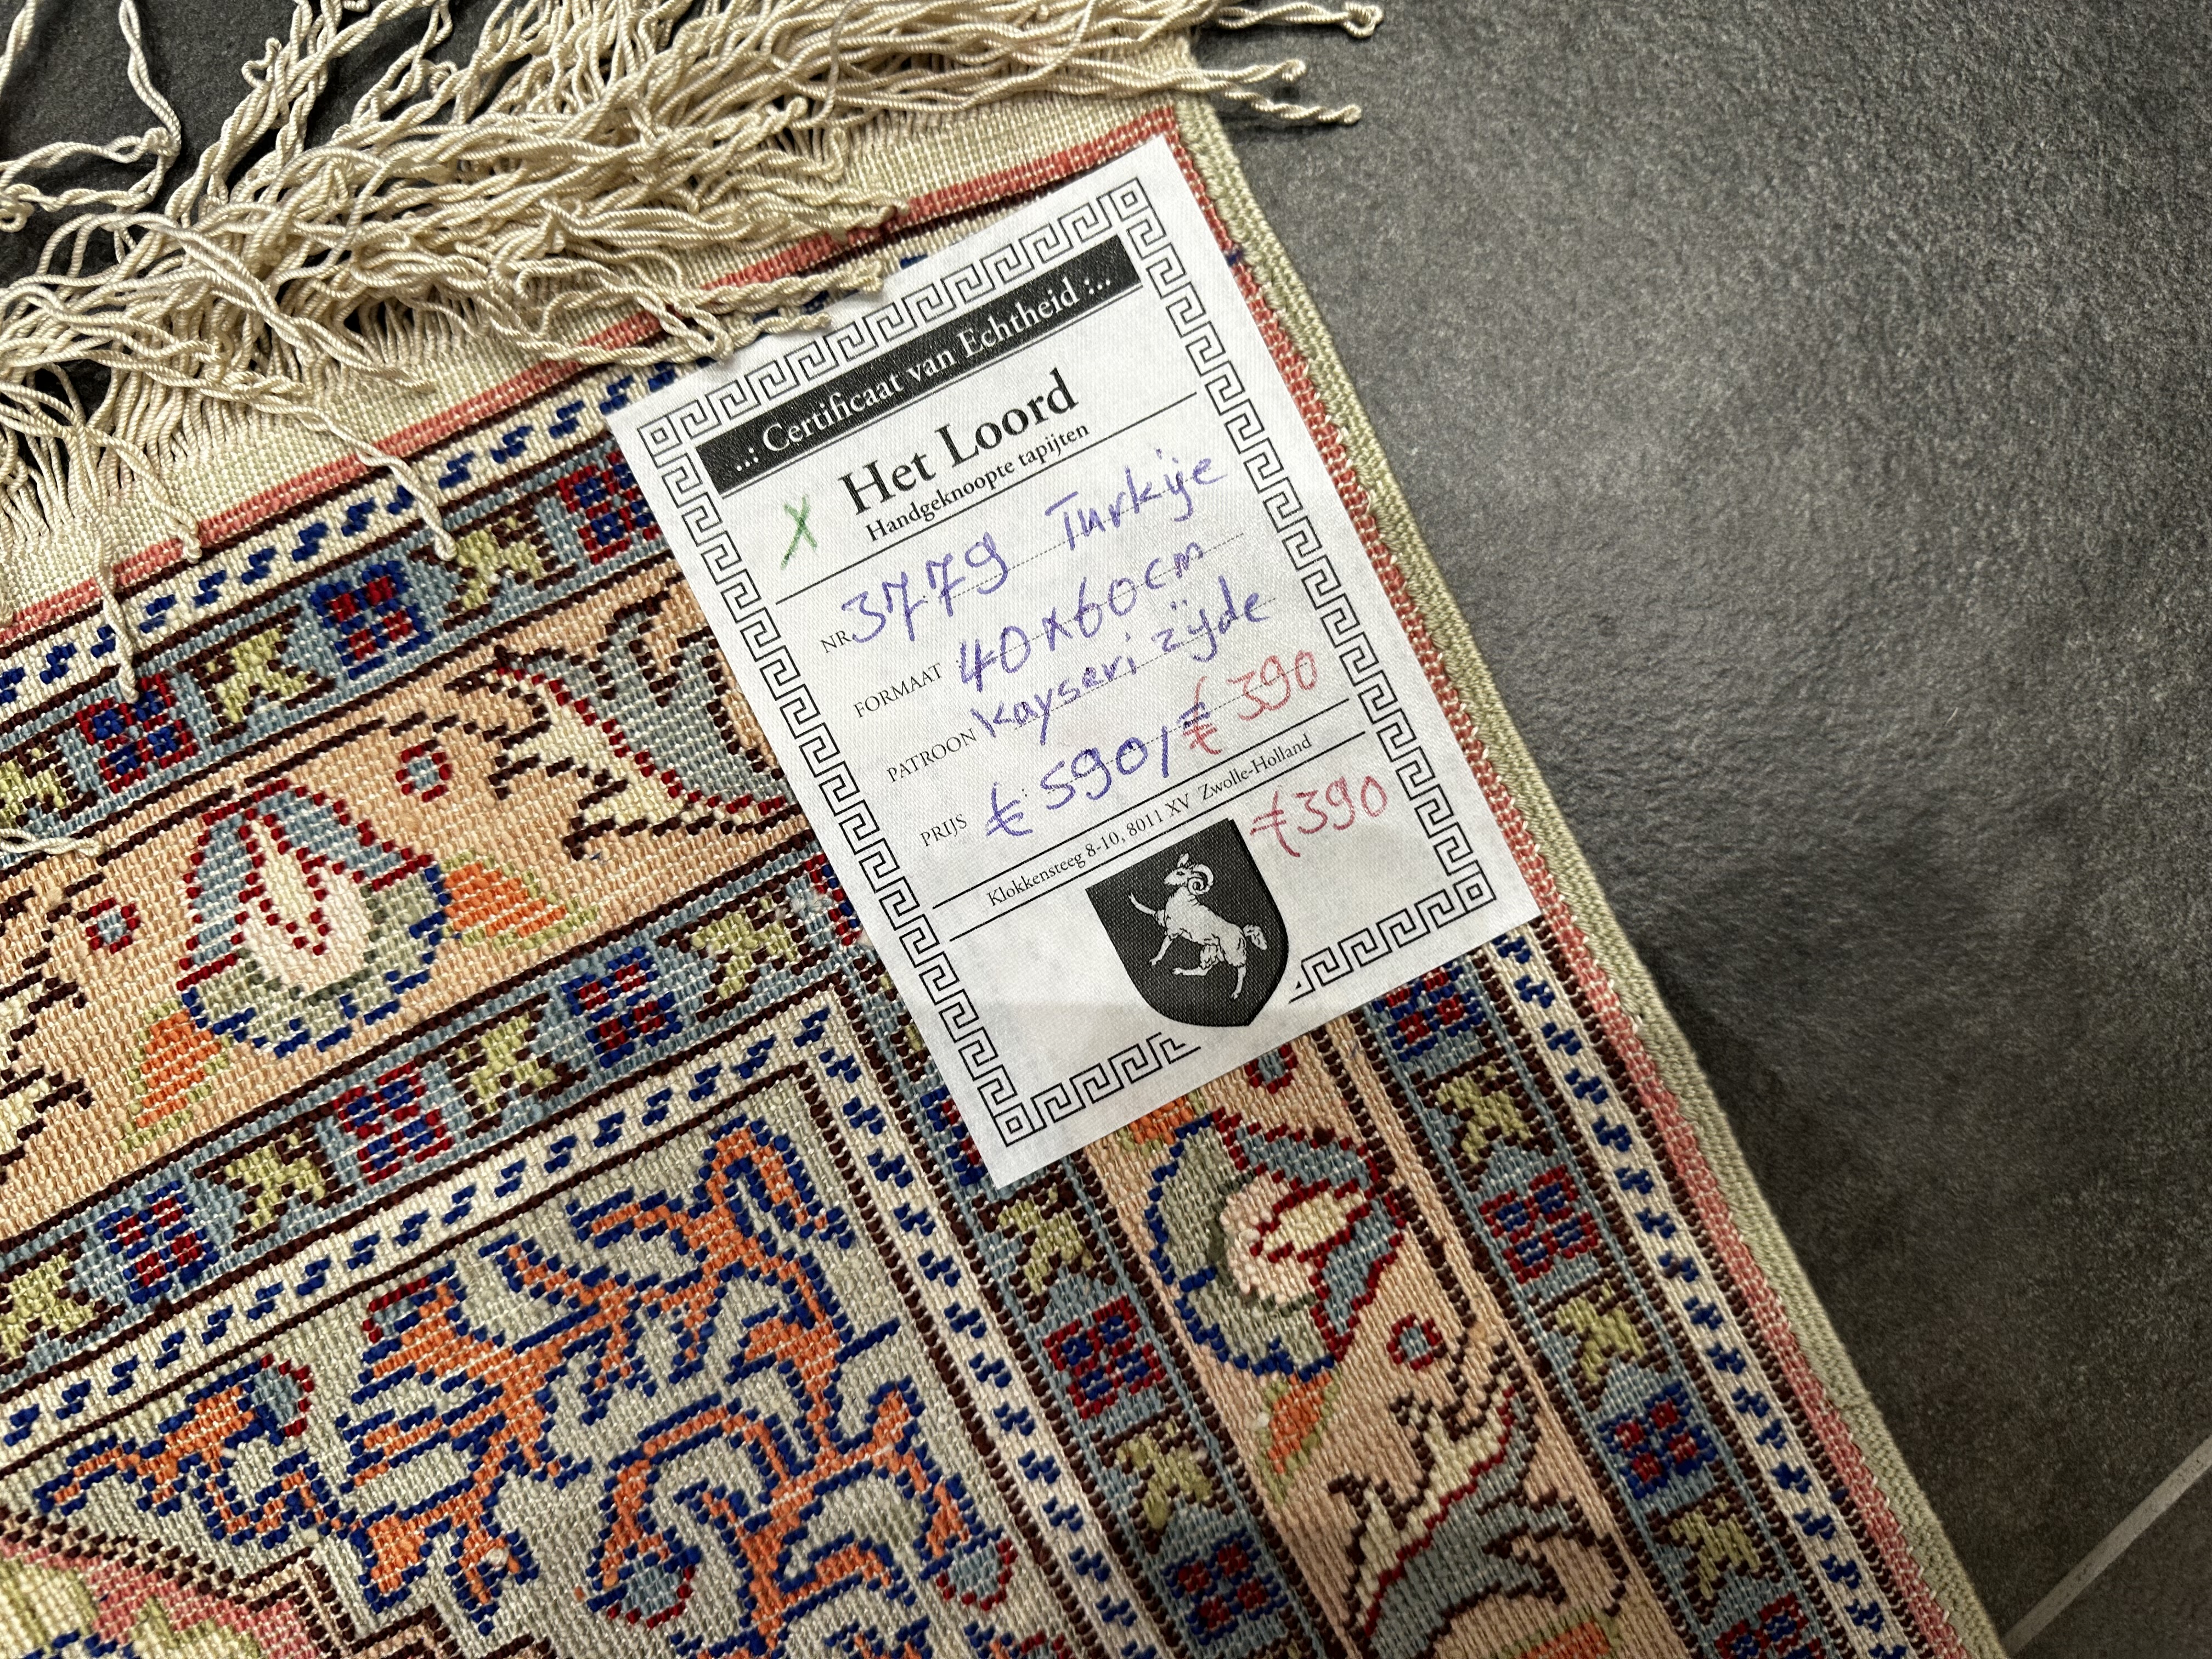 ..: Certificaat van Echtheid :..
Het Loord
Handgeknoopte tapijten
X
NR 3779 Turkije
FORMAAT : 40x60cm
PATROON Kayseri zijde
PRIJS : € 590,/ € 390
Klokkensteeg 8-10, 8011 XV Zwolle-Holland
€390